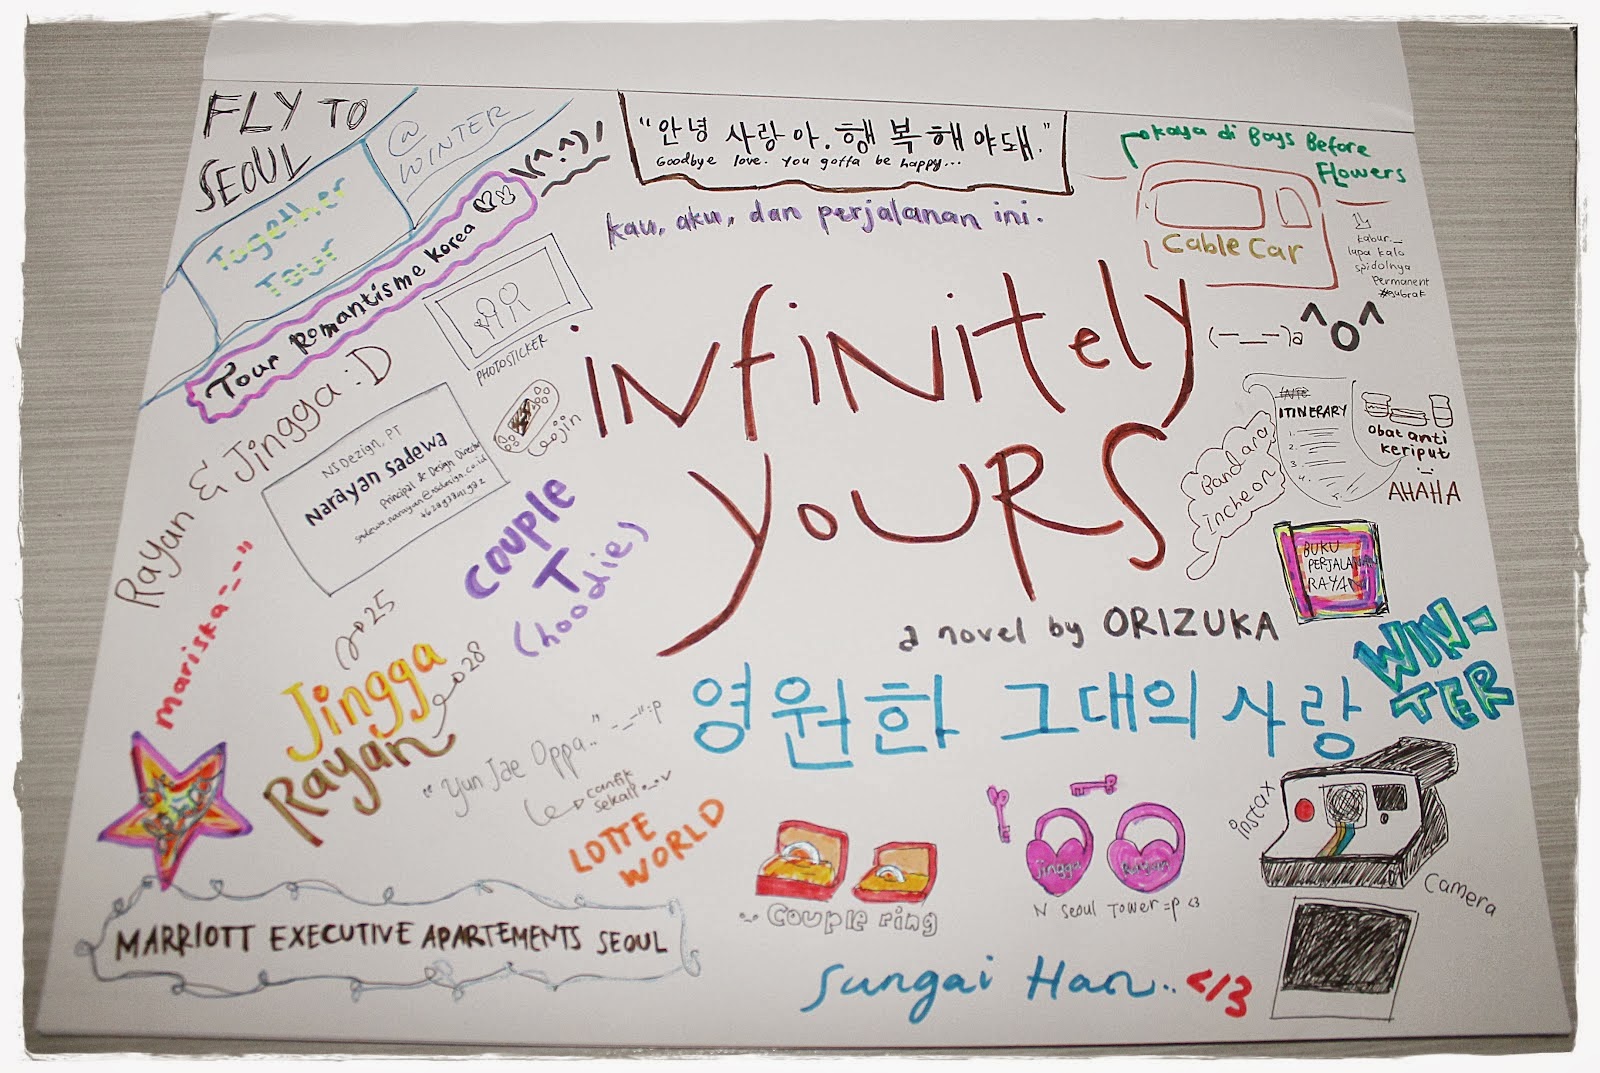 FLY TO
SEOUL
@
WINTER
Together
Tour
Tour Romantisme Korea
\(^.^)/
"안녕 사랑아. 행복해야돼."
Goodbye love. You gotta be happy...
kau, aku, dan perjalanan ini.
kaya di Boys Before
Flowers
Cable Car
kabur._
lupa kalo
spidolnya
permanent
#gubrak
(-__-)a
^o^
PHOTOSTICKER
Rayan & Jingga :D
NSDezign, PT
Narayan Sadewa
Principal & Design Director
infinitely
yours
a novel by ORIZUKA
영원한 그대의 사랑
ITINERARY
1.
2.
3.
4.
Bandara
incheon
obat anti
keriput
AHAHA
BUKU
PERJALANAN
RAYAN
WIN-
TER
COUPLE
T
(hoodie)
mariska -_-"
25
Jingga
28
Rayan
"Yun Jae Oppa.." -_-" :p
cantik
sekali
LOTTE
WORLD
couple ring
Jingga
Rayan
N Seoul Tower =p <3
instax
camera
MARRIOTT EXECUTIVE APARTEMENTS SEOUL
Sungai Han.. </3